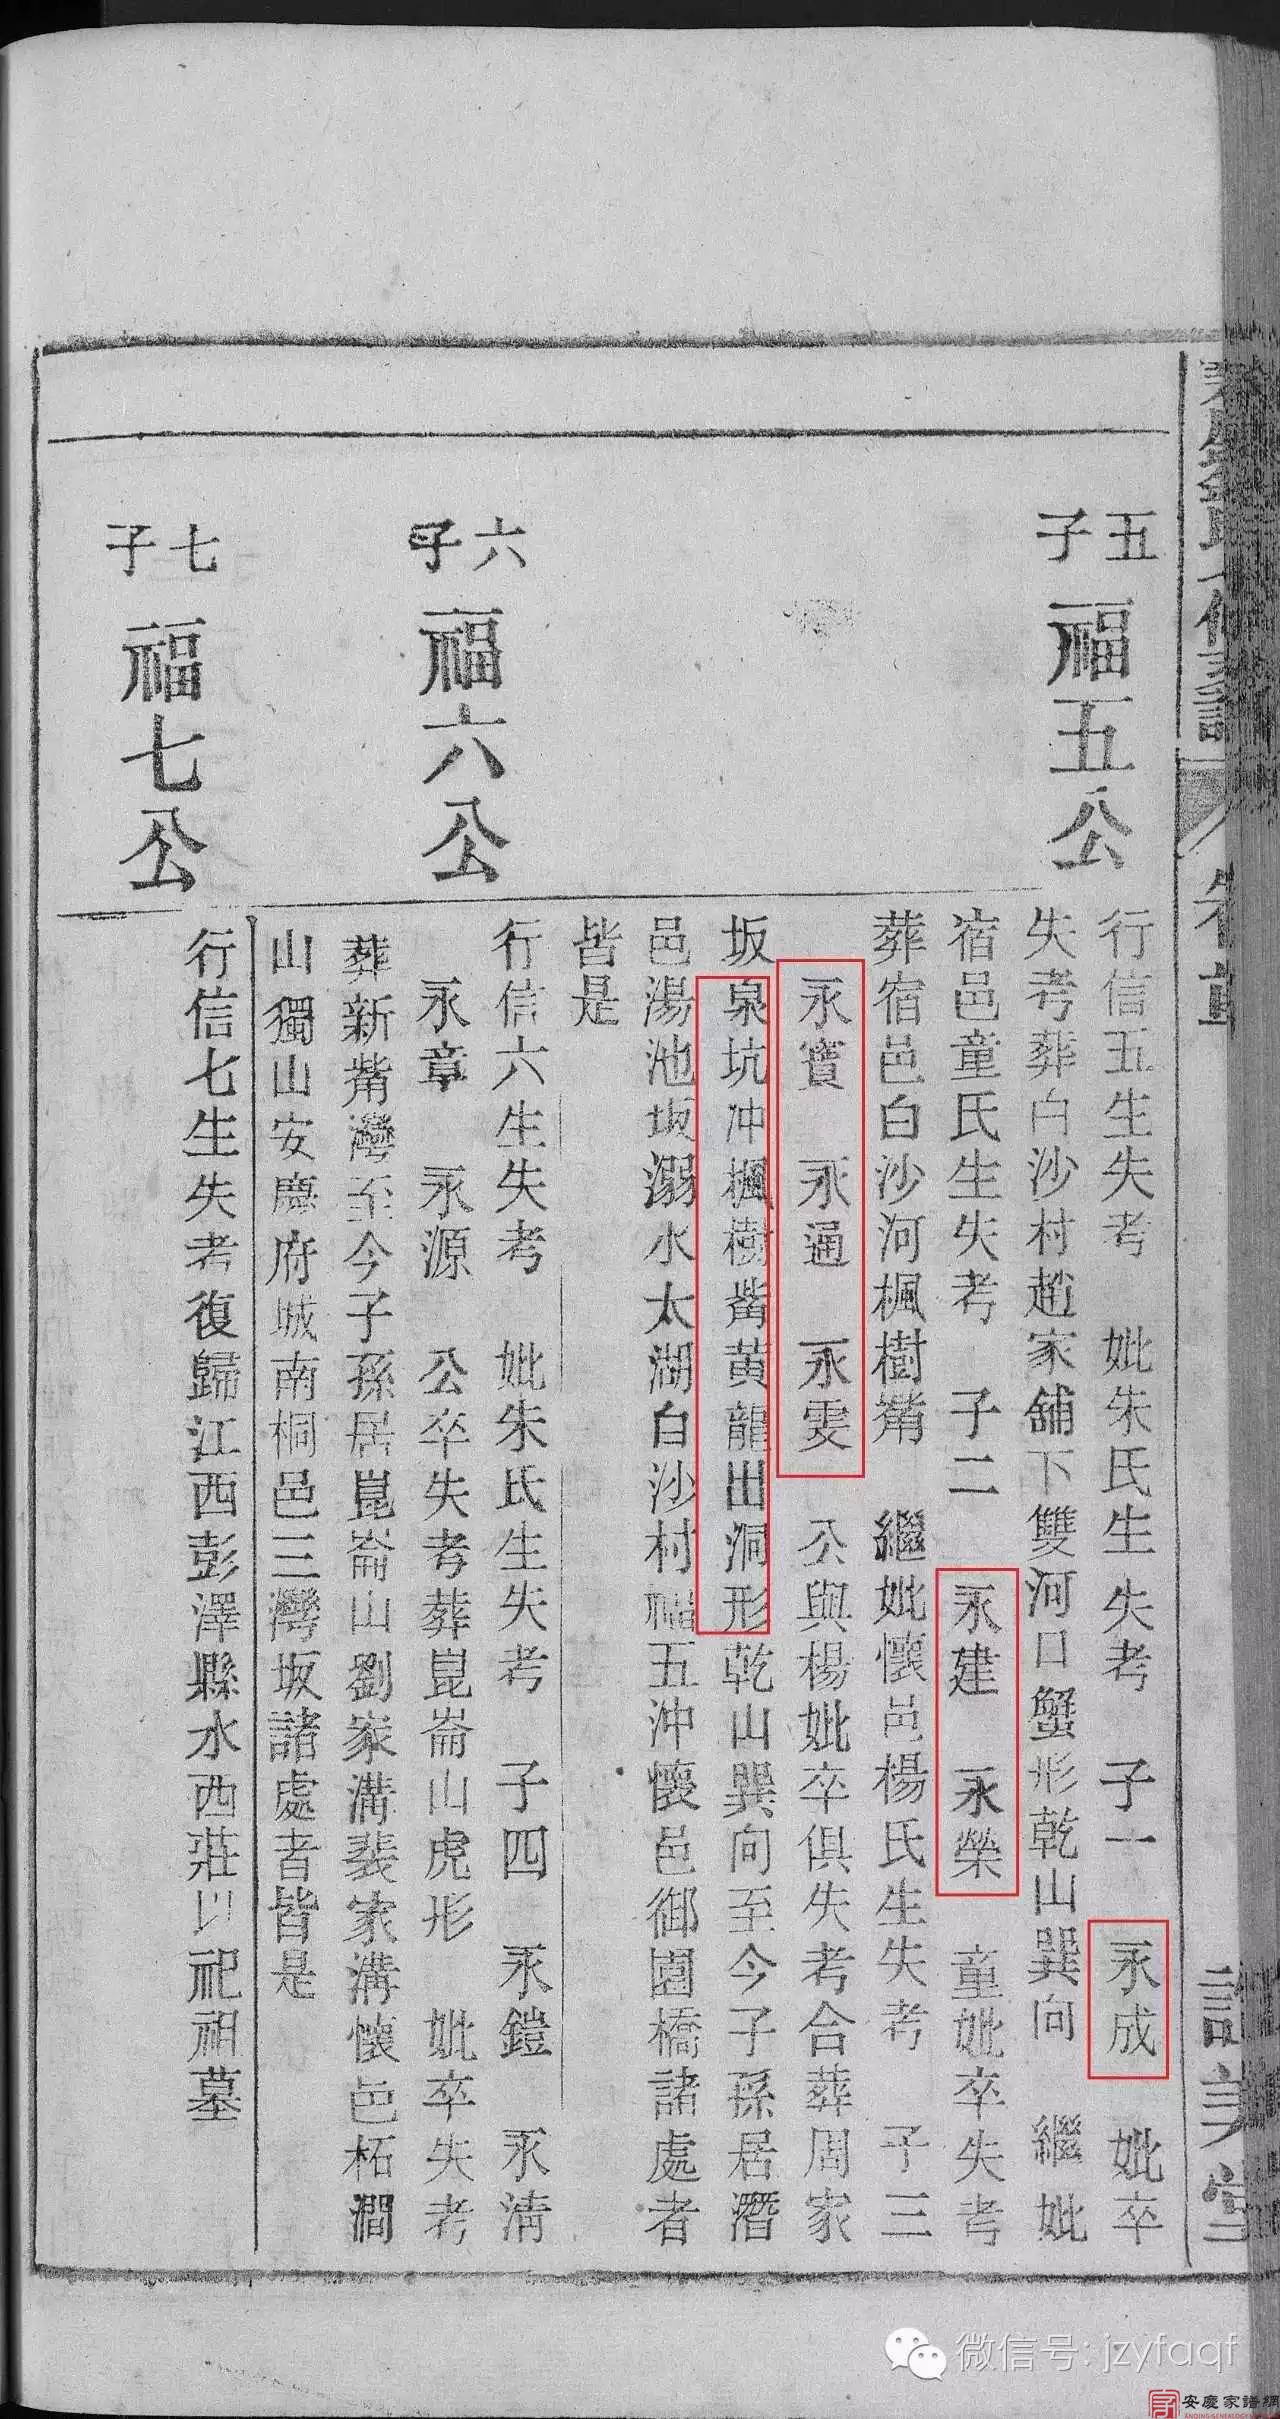 五子 福五公
行信五生失考 妣朱氏生失考 子一 永成 妣卒
失考葬白沙村趙家舖下雙河口蟹形乾山巽向 繼妣
宿邑童氏生失考 子二 永建 永榮 童妣卒失考
葬宿邑白沙河楓樹觜 繼妣懷邑楊氏生失考 子三
永寶 永通 永雯 公與楊妣卒俱失考合葬周家
坂泉坑冲楓樹觜黄龍出洞形乾山巽向至今子孫居潛
邑湯池坂溺水太湖白沙村福五沖懷邑御園橋諸處者
皆是
六子 福六公
行信六生失考 妣朱氏生失考 子四 永鎧 永清
永章 永源 公卒失考葬崑崙山虎形 妣卒失考
葬新觜灣至今子孫居崑崙山劉家溝裴家溝懷邑柘澗
山獨山安慶府城南桐邑三灣坂諸處者皆是
七子 福七公
行信七生失考復歸江西彭澤縣水西莊以祀祖墓
微信号: jzyfaqf
安慶家譜網